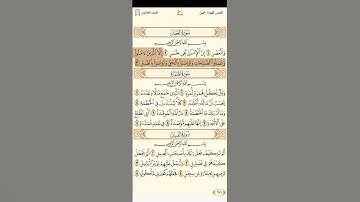 سُورَةُ العَصْرِ
بِسْمِ اللَّهِ الرَّحْمَٰنِ الرَّحِيمِ
وَالْعَصْرِ ۝١ إِنَّ الْإِنسَانَ لَفِي خُسْرٍ ۝٢ إِلَّا الَّذِينَ آمَنُوا
وَعَمِلُوا الصَّالِحَاتِ وَتَوَاصَوْا بِالْحَقِّ وَتَوَاصَوْا بِالصَّبْرِ ۝٣
سُورَةُ الهُمَزَةِ
بِسْمِ اللَّهِ الرَّحْمَٰنِ الرَّحِيمِ
وَيْلٌ لِّكُلِّ هُمَزَةٍ لُّمَزَةٍ ۝١ الَّذِي جَمَعَ مَالًا وَعَدَّدَهُ ۝٢
يَحْسَبُ أَنَّ مَالَهُ أَخْلَدَهُ ۝٣ كَلَّا لَيُنبَذَنَّ فِي الْحُطَمَةِ ۝٤
وَمَا أَدْرَاكَ مَا الْحُطَمَةُ ۝٥ نَارُ اللَّهِ الْمُوقَدَةُ ۝٦ الَّتِي تَطَّلِعُ
عَلَى الْأَفْئِدَةِ ۝٧ إِنَّهَا عَلَيْهِم مُّؤْصَدَةٌ ۝٨ فِي عَمَدٍ مُّمَدَّدَةٍ ۝٩
سُورَةُ الفِيلِ
بِسْمِ اللَّهِ الرَّحْمَٰنِ الرَّحِيمِ
أَلَمْ تَرَ كَيْفَ فَعَلَ رَبُّكَ بِأَصْحَابِ الْفِيلِ ۝١ أَلَمْ يَجْعَلْ
كَيْدَهُمْ فِي تَضْلِيلٍ ۝٢ وَأَرْسَلَ عَلَيْهِمْ طَيْرًا أَبَابِيلَ ۝٣
تَرْمِيهِم بِحِجَارَةٍ مِّن سِجِّيلٍ ۝٤ فَجَعَلَهُمْ كَعَصْفٍ مَّأْكُولٍ ۝٥
٦٠١